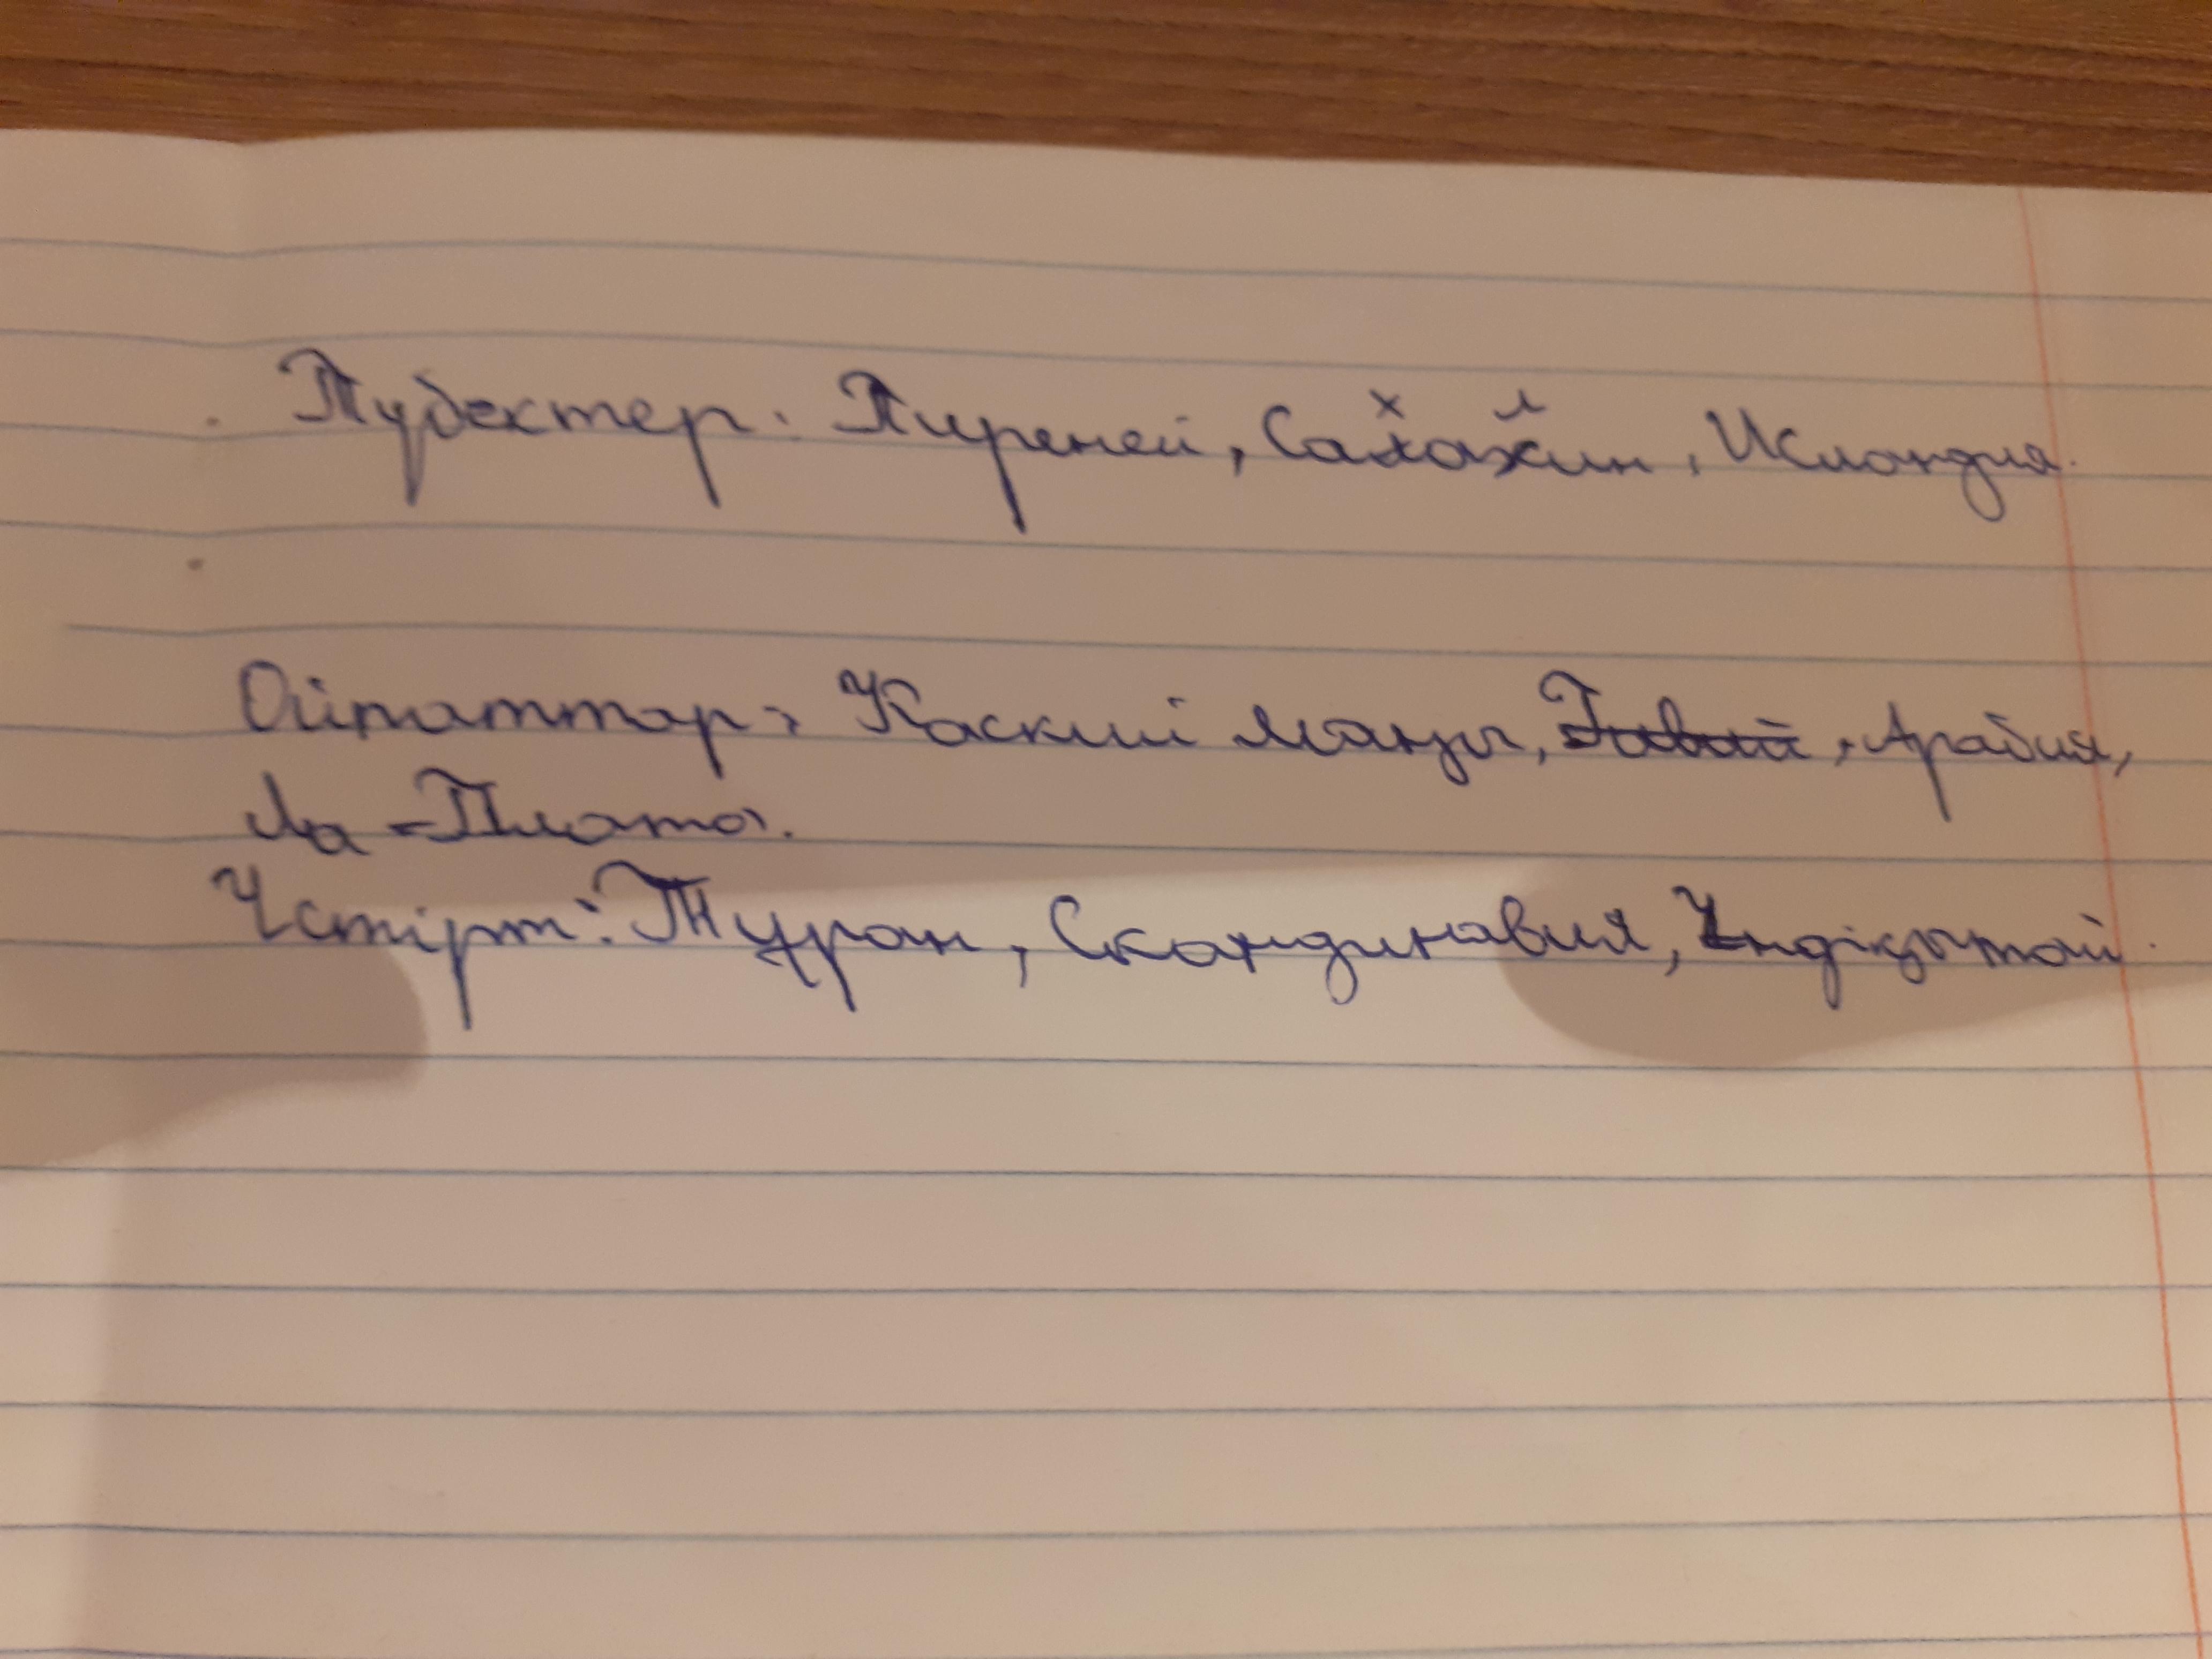 Түбектер: Пиреней, Сахалин, Исландия.
Ойпаттар: Каспий маңы, Гавай, Арабия,
Ла-Плата.
Үстірт: Тұран, Скандинавия, Үндіқытай.